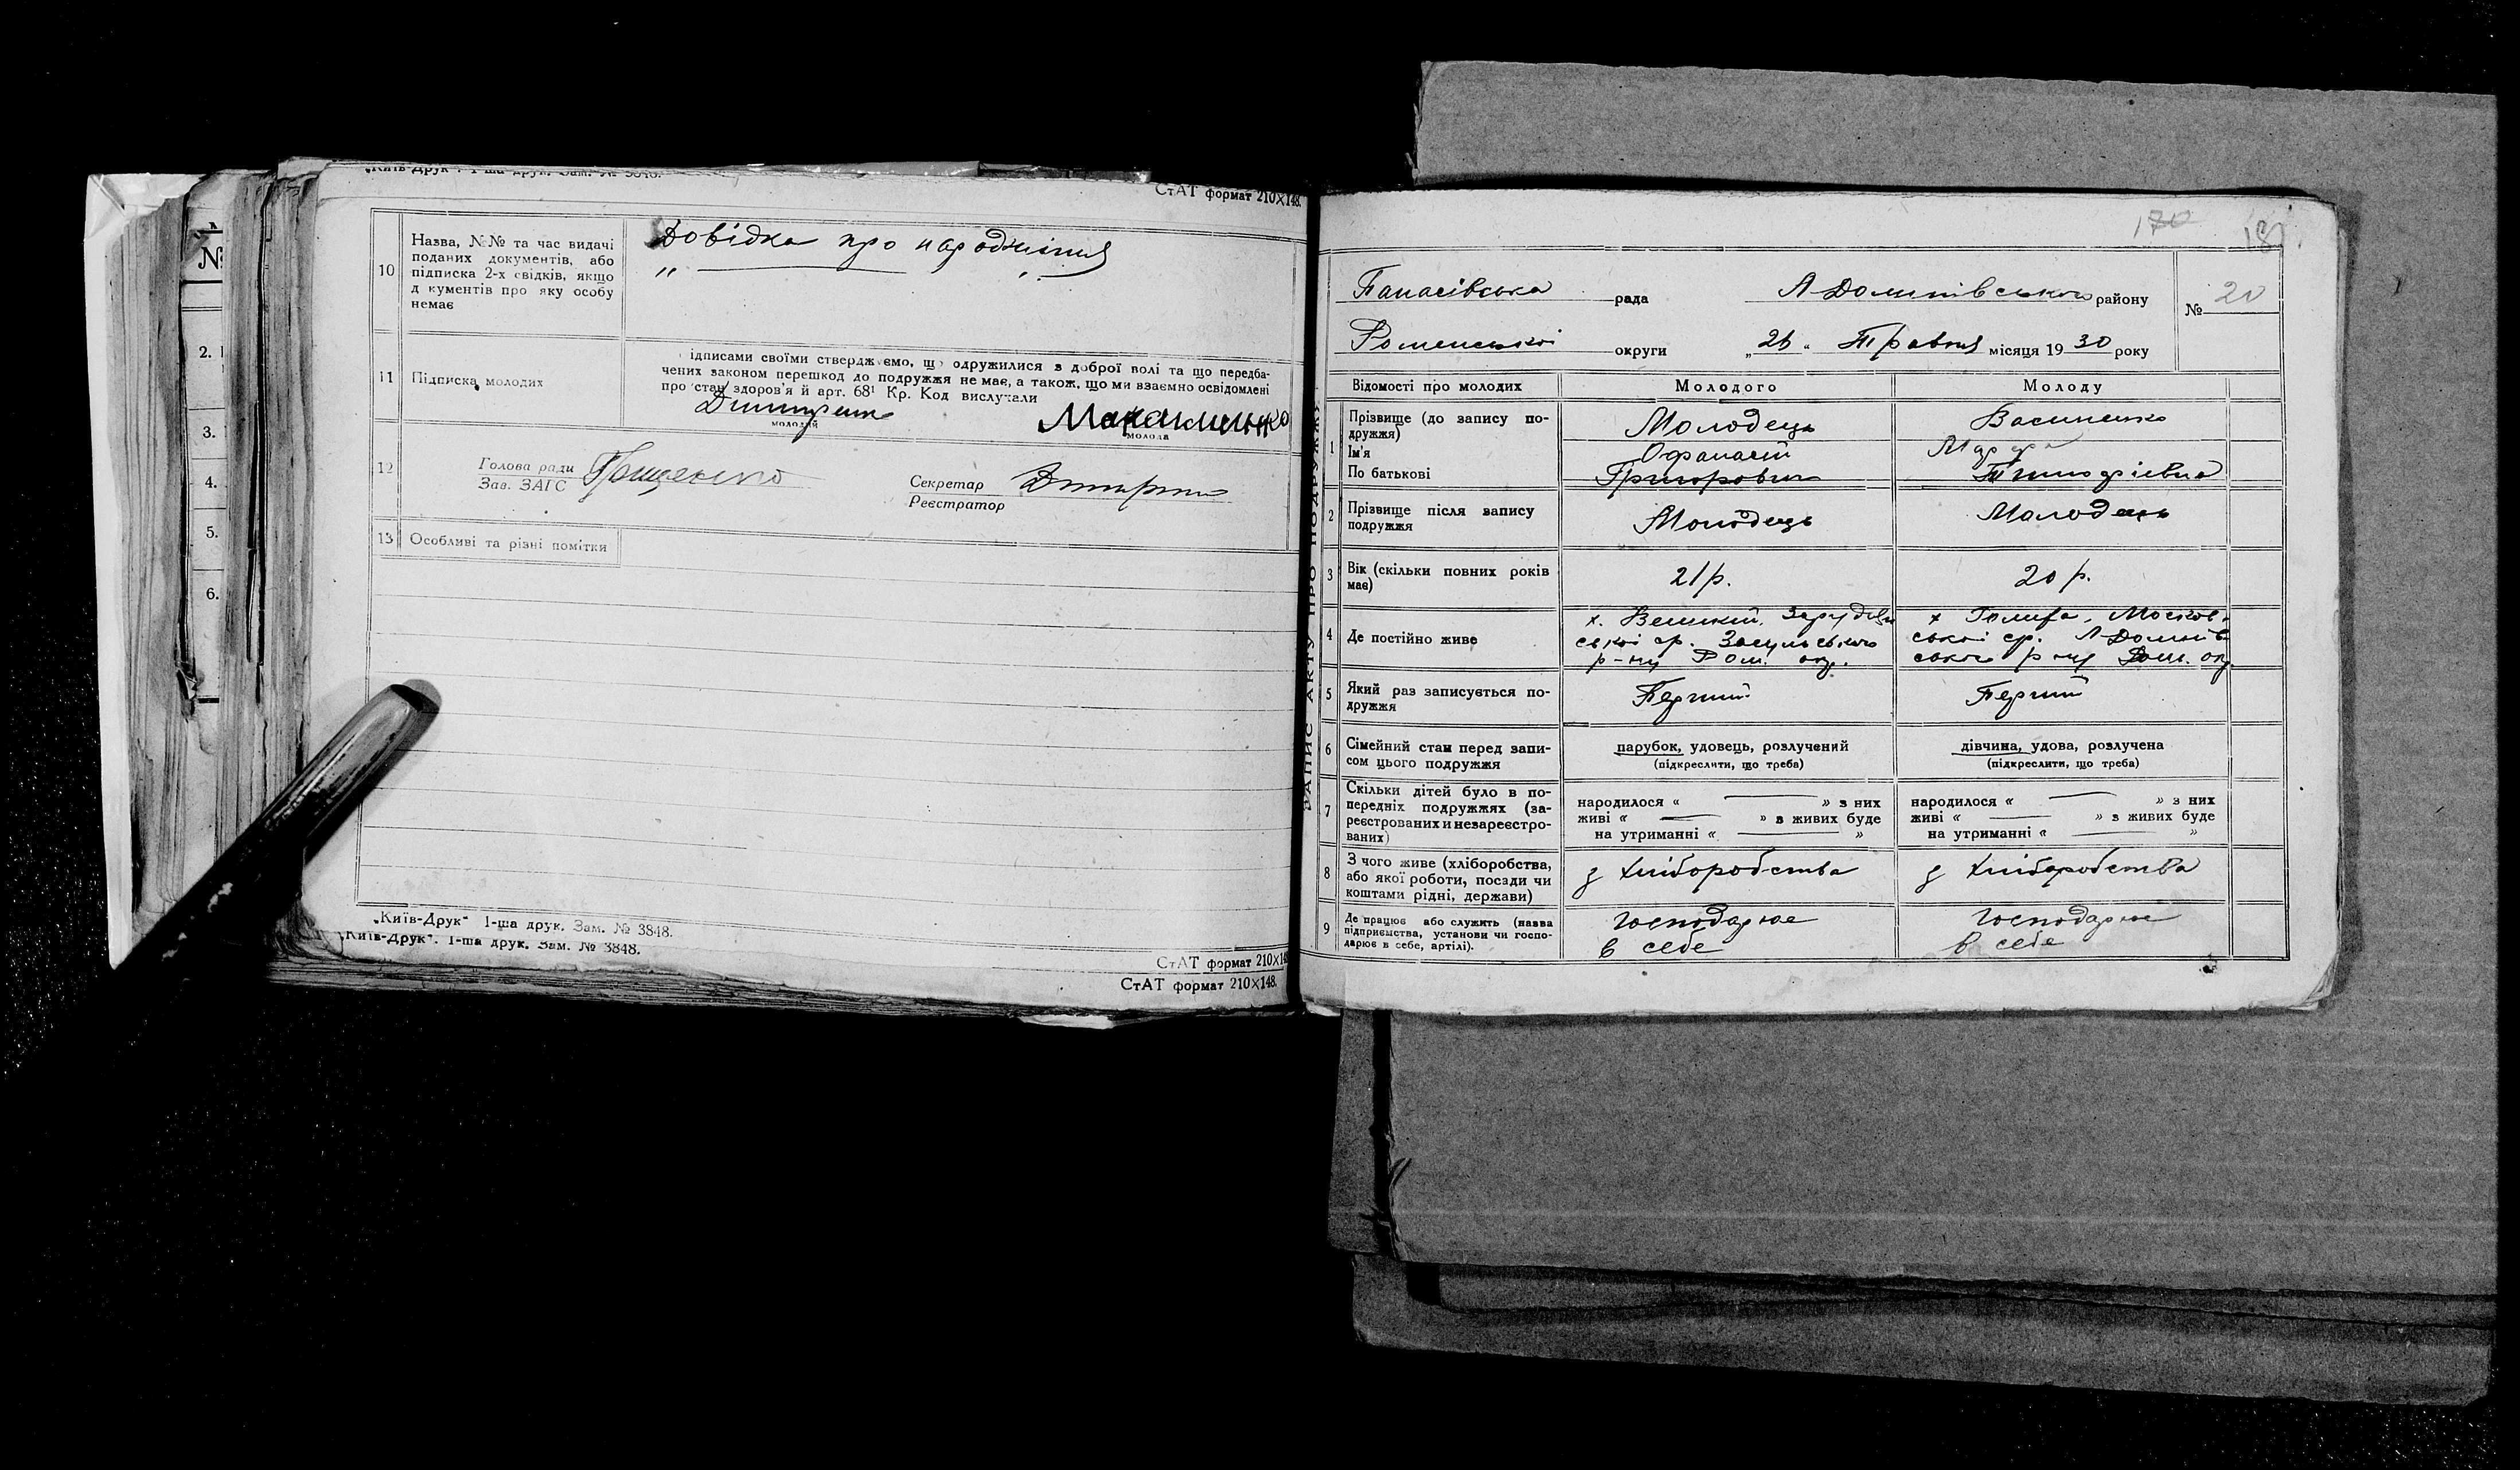 „Київ-Друк". 1-ша друк. Зам. № 3848.
СтАТ формат 210×148.
№
2.
3.
4.
5.
6.
10
Назва, №№ та час видачі
поданих документів, або
підписка 2-х свідків, якщо
д кументів про яку особу
немає
Довідка про народження
„ ——— „ ———
11
Підписка молодих
ідписами своїми стверджуємо, що одружилися з доброї волі та що передба-
чених законом перешкод до подружжя не має, а також, що ми взаємно освідомлені
про стан здоров'я й арт. 68¹ Кр. Код вислухали
молодий
молода
12
Голова ради
Зав. ЗАГС
Грищенко
Секретар
Реєстратор
13
Особливі та різні помітки
„Київ-Друк" 1-ша друк. Зам. № 3848.
„Київ-Друк". 1-ша друк. Зам. № 3848.
СтАТ формат 210×148
СтАТ формат 210×148.
ЗАПИС АКТУ ПРО ПОДРУЖЖЯ
170
Панасівська рада
Л Долинівського району
№ 20
Роменської округи „26" Травня місяця 1930 року
Відомості про молодих
Молодого
Молоду
1
Прізвище (до запису по-
дружжя)
Молодець
Василенко
Ім'я
Офанасій
Марфа
По батькові
Григорович
Тимофіевна
2
Прізвище після запису
подружжя
Молодець
Молодець
3
Вік (скільки повних років
має)
21 р.
20 р.
4
Де постійно живе
х. Великий, Зарудів
ської ср. Засульського
р-ну Ром. окр.
х Голуба, Москов-
ської ср. Л Долинів
ського р-ну Ром. окр.
5
Який раз записується по-
дружжя
Перший
Перший
6
Сімейний стан перед запи-
сом цього подружжя
парубок, удовець, розлучений
(підкреслити, що треба)
дівчина, удова, розлучена
(підкреслити, що треба)
7
Скільки дітей було в по-
передніх подружжях (за-
реєстрованих и незареєстро-
ваних)
народилося « ——— » з них
живі « ——— » з живих буде
на утриманні « ——— »
народилося « ——— » з них
живі « ——— » з живих буде
на утриманні « ——— »
8
З чого живе (хліборобства,
або якої роботи, посади чи
коштами рідні, держави)
з хліборобства
з хліборобства
9
Де працює або служить (назва
підприємства, установи чи госпо-
дарює в себе, артілі).
господарює
в себе
господарює
в себе